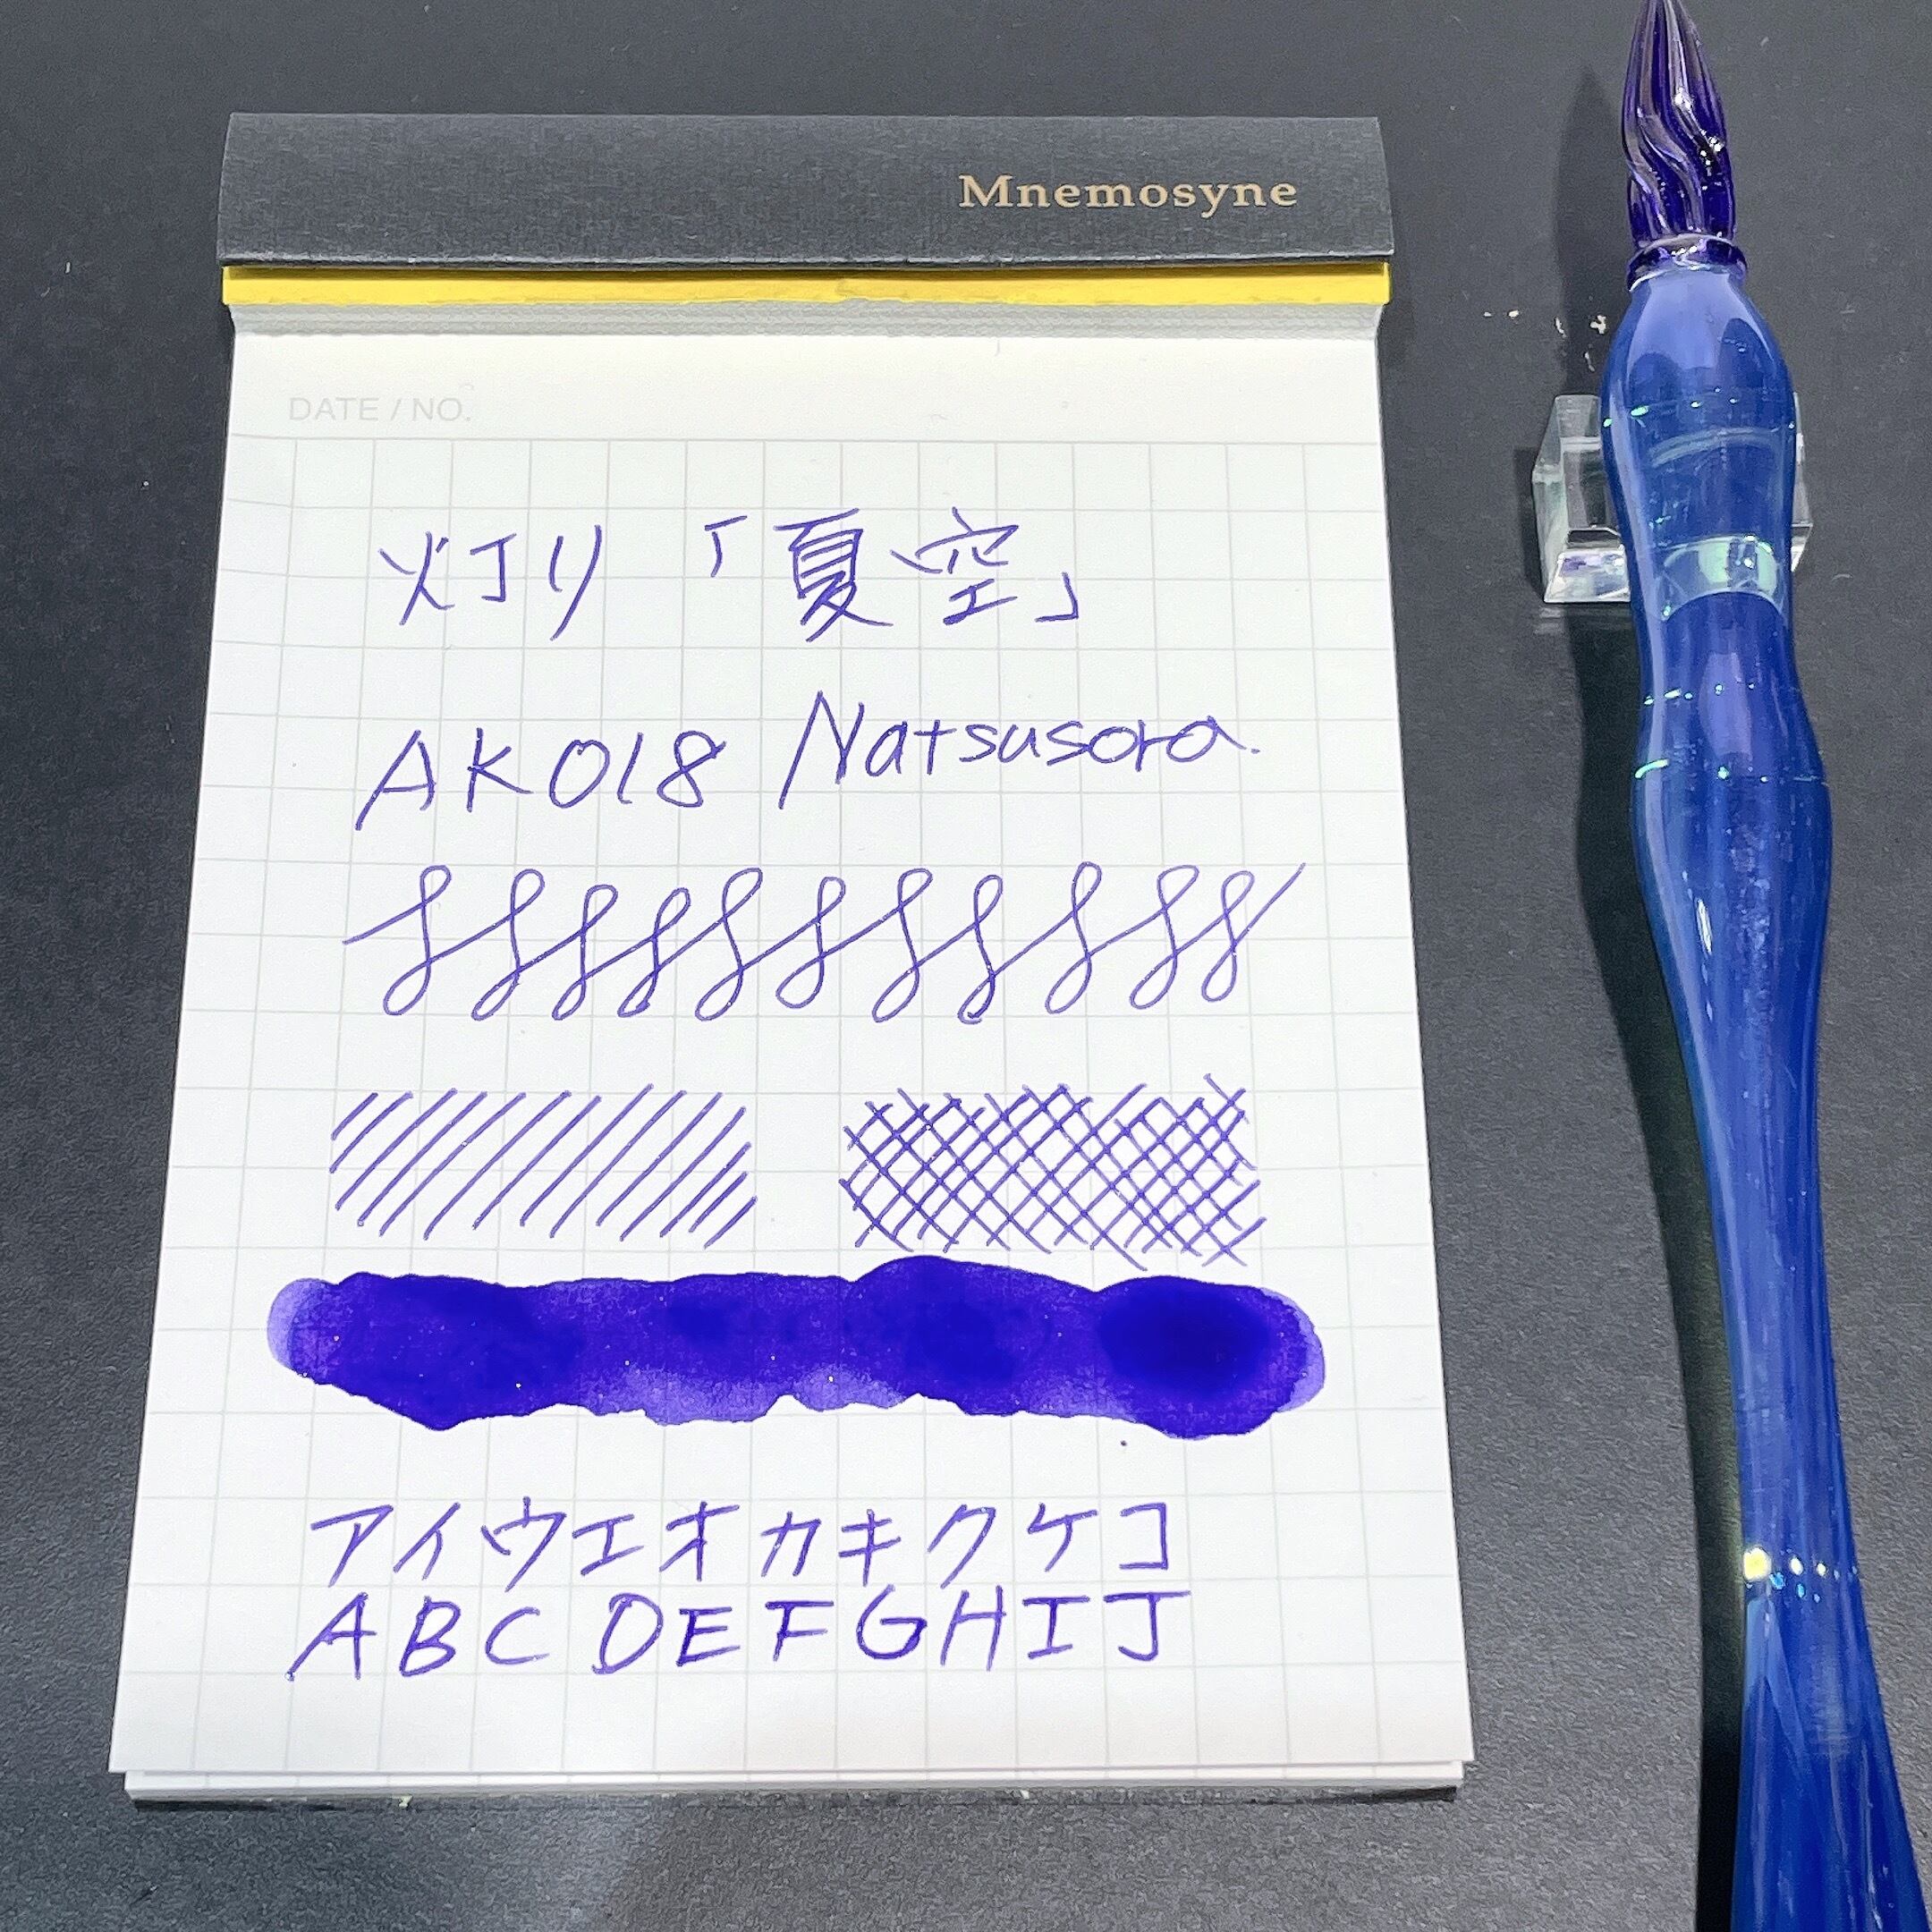 Mnemosyne
DATE / NO.
灯り「夏空」
AK018 Natsusora.
アイウエオカキクケコ
ABCDEFGHIJ